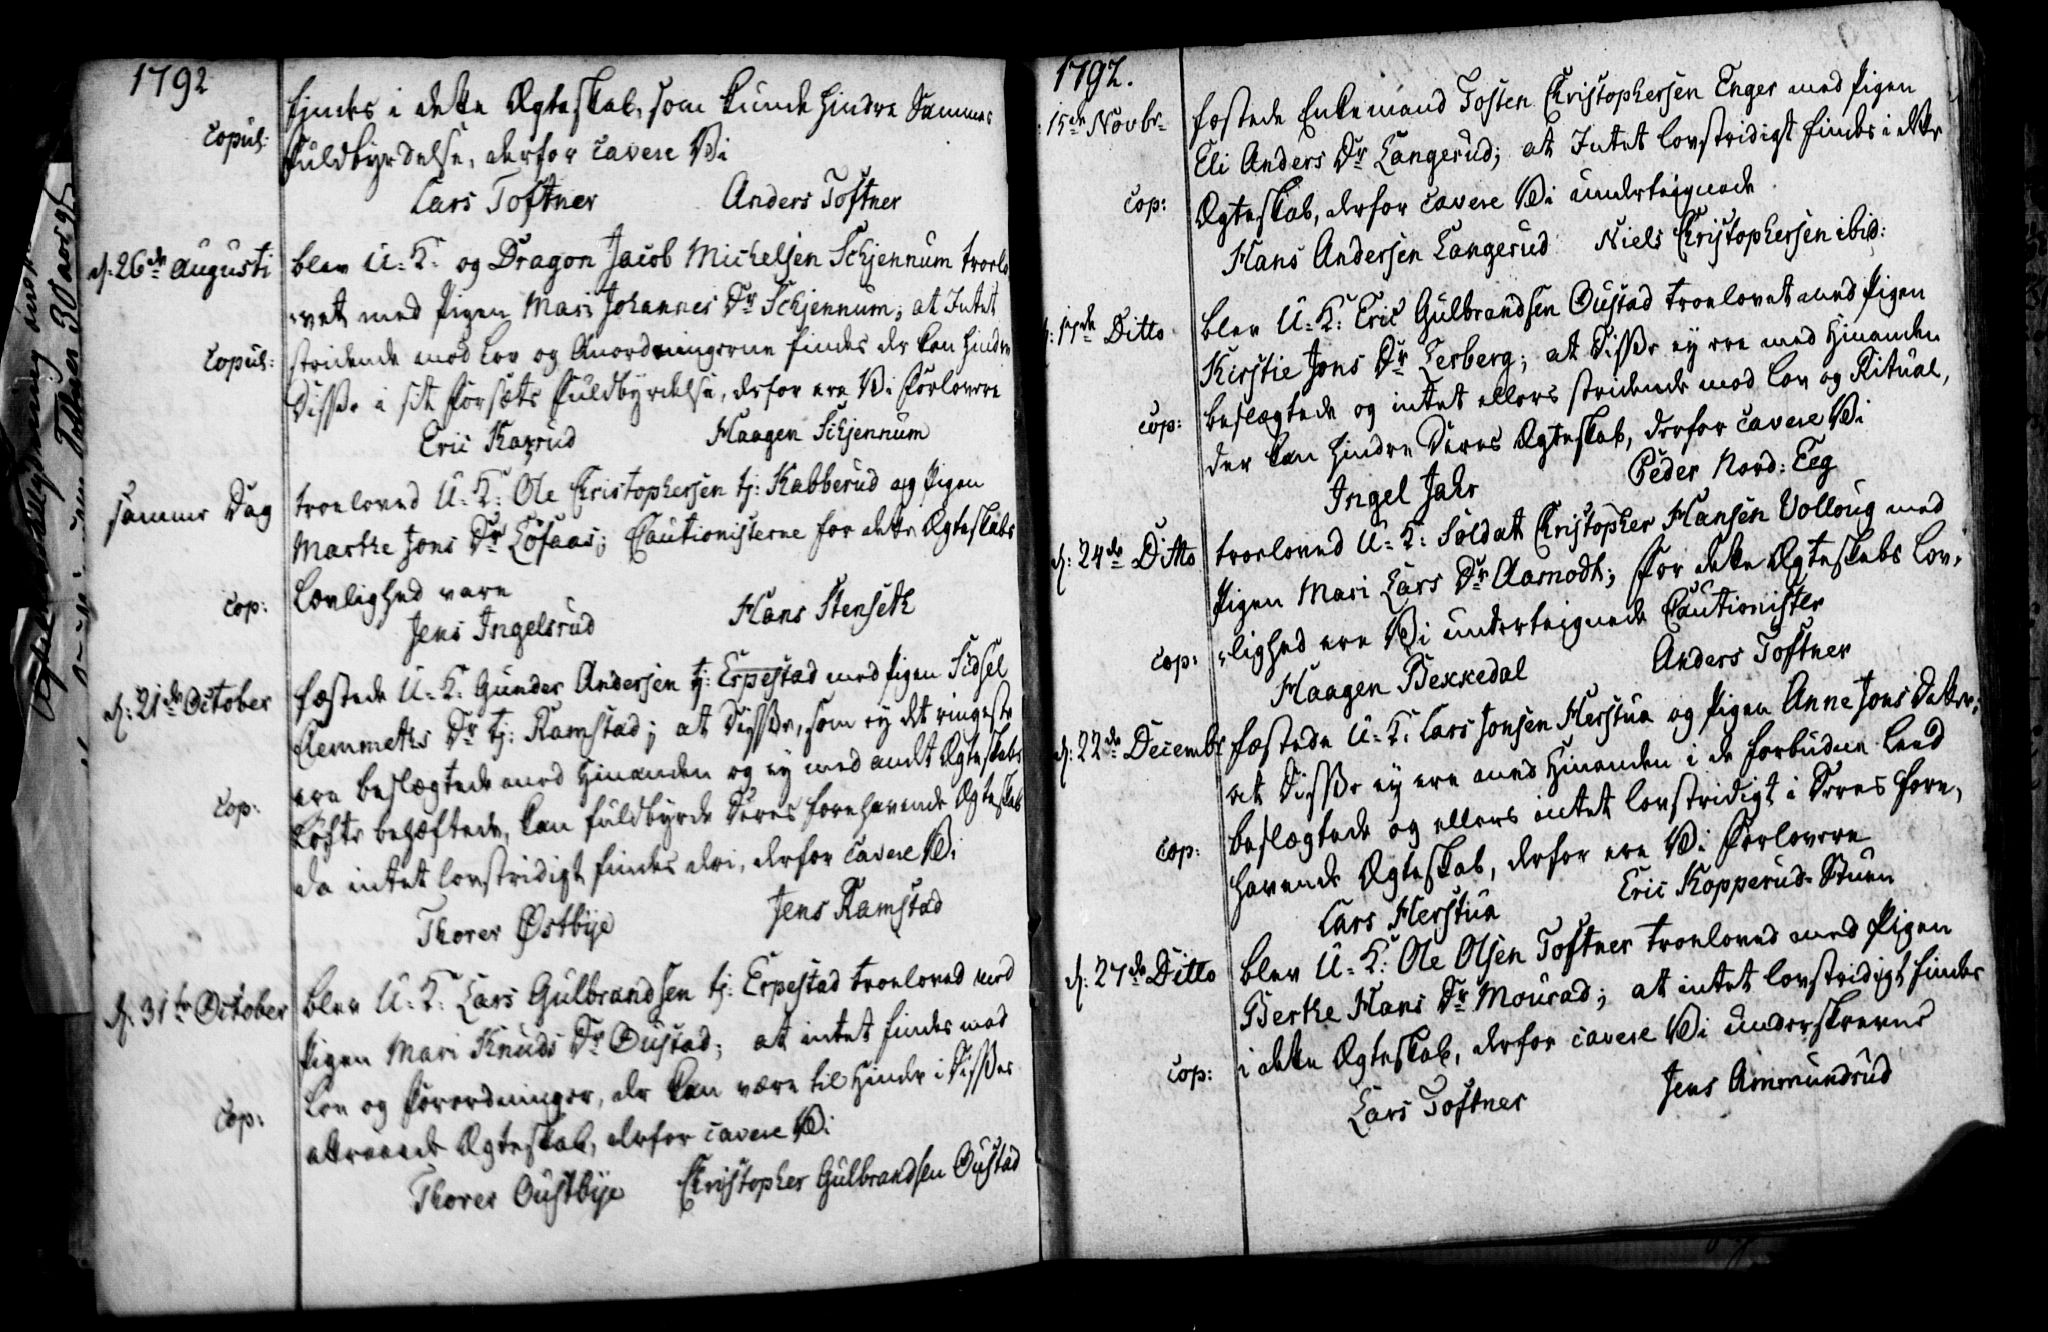 1792
findes i dette Ægteskab, som kunde hindre Sammes
copul:
Fuldbyrdelse, derfor cavere Vi
Lars Toftner Anders Toftner
d: 26de Augusti blev U: K: og Dragon Jacob Michelsen Schjennum troelo
vet med Pigen Mari Johannes Dr Schjennum; at Intet
copul: stridende mod Lov og Anordningerne findes der kan hindre
Disse i sit Forsæts Fuldbyrdelse, derfor ere Vi Forlovere
Eric Kaxrud Haagen Schjennum
samme Dag troeloved U: K: Ole Christophersen tj: Kabberud og Pigen
Marthe Jons Dr Løsaas; Cautionisterne for dette Ægteskabs
cop: Lovlighed vare
Jens Ingelsrud Hans Stenseth
d: 21de October fæstede U: K: Gunder Andersen tj: Erpestad med Pigen Sidsel
Clemmeths Dr tj: Ramstad; at Disse, som ey det ringeste
ere beslægtede med Hinanden og ey med andet Ægteskabs
cop: Løfte behæftede, kan fuldbyrde Deres forehavende Ægteskab
da intet lovstridigt findes deri, derfor cavere Vi
Thorer Østbye Jens Ramstad
d: 31te October blev U: K: Lars Gulbrandsen tj: Erpestad troeloved med
Pigen Mari Knuds Dr Oustad; at intet findes mod
Lov og Forordninger, der kan være til Hinder i Disses
cop: attraaede Ægteskab, derfor cavere Vi
Thorer Oustbye Christopher Gulbrandsen Oustad
1792.
15de Novbr fæstede Enkemand Tosten Christophersen Enger med Pigen
Eli Anders Dr Langerud; at Intet lovstridigt findes i dette
cop: Ægteskab, derfor cavere Vi undertegnede
Hans Andersen Langerud Niels Christophersen ibid:
d: 17de Ditto blev U: K: Eric Gulbrandsen Oustad troelovet med Pigen
Kirstie Jons Dr Lerberg; at Disse ey ere med Hinanden
cop: beslægtede og intet ellers stridende mod Lov og Ritual,
der kan hindre Deres Ægteskab, derfor cavere Vi
Ingel Jahr Peder Nord: Eeg
d: 24de Ditto troeloved U: K: Soldat Christopher Hansen Volloug med
Pigen Mari Lars Dr Aamodt; for dette Ægteskabs Lov-
cop: lighed ere Vi undertegnede Cautionister
Haagen Bekkedal Anders Toftner
d: 22de Decembr fæstede U: K: Lars Jonsen Herstua og Pigen Anne Jons Datter;
at Disse ey ere med Hinanden i de forbudne Leed
cop: beslægtede og ellers intet lovstridigt i Deres fore-
havende Ægteskab, derfor ere Vi Forlovere
Lars Herstua Eric Kopperud-Stuen
d: 27de Ditto blev U: K: Ole Olsen Toftner troeloved med Pigen
Berthe Hans Dr Mourad; at intet lovstridigt findes
cop: i dette Ægteskab, derfor cavere Vi underskrevne
Lars Toftner Jens Ammundrud